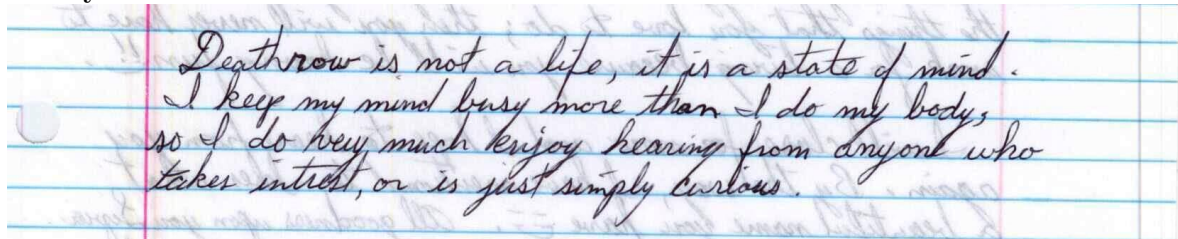 Deathrow is not a life, it is a state of mind.
I keep my mind busy more than I do my body,
so I do very much enjoy hearing from anyone who
takes intrest, or is just simply curious.